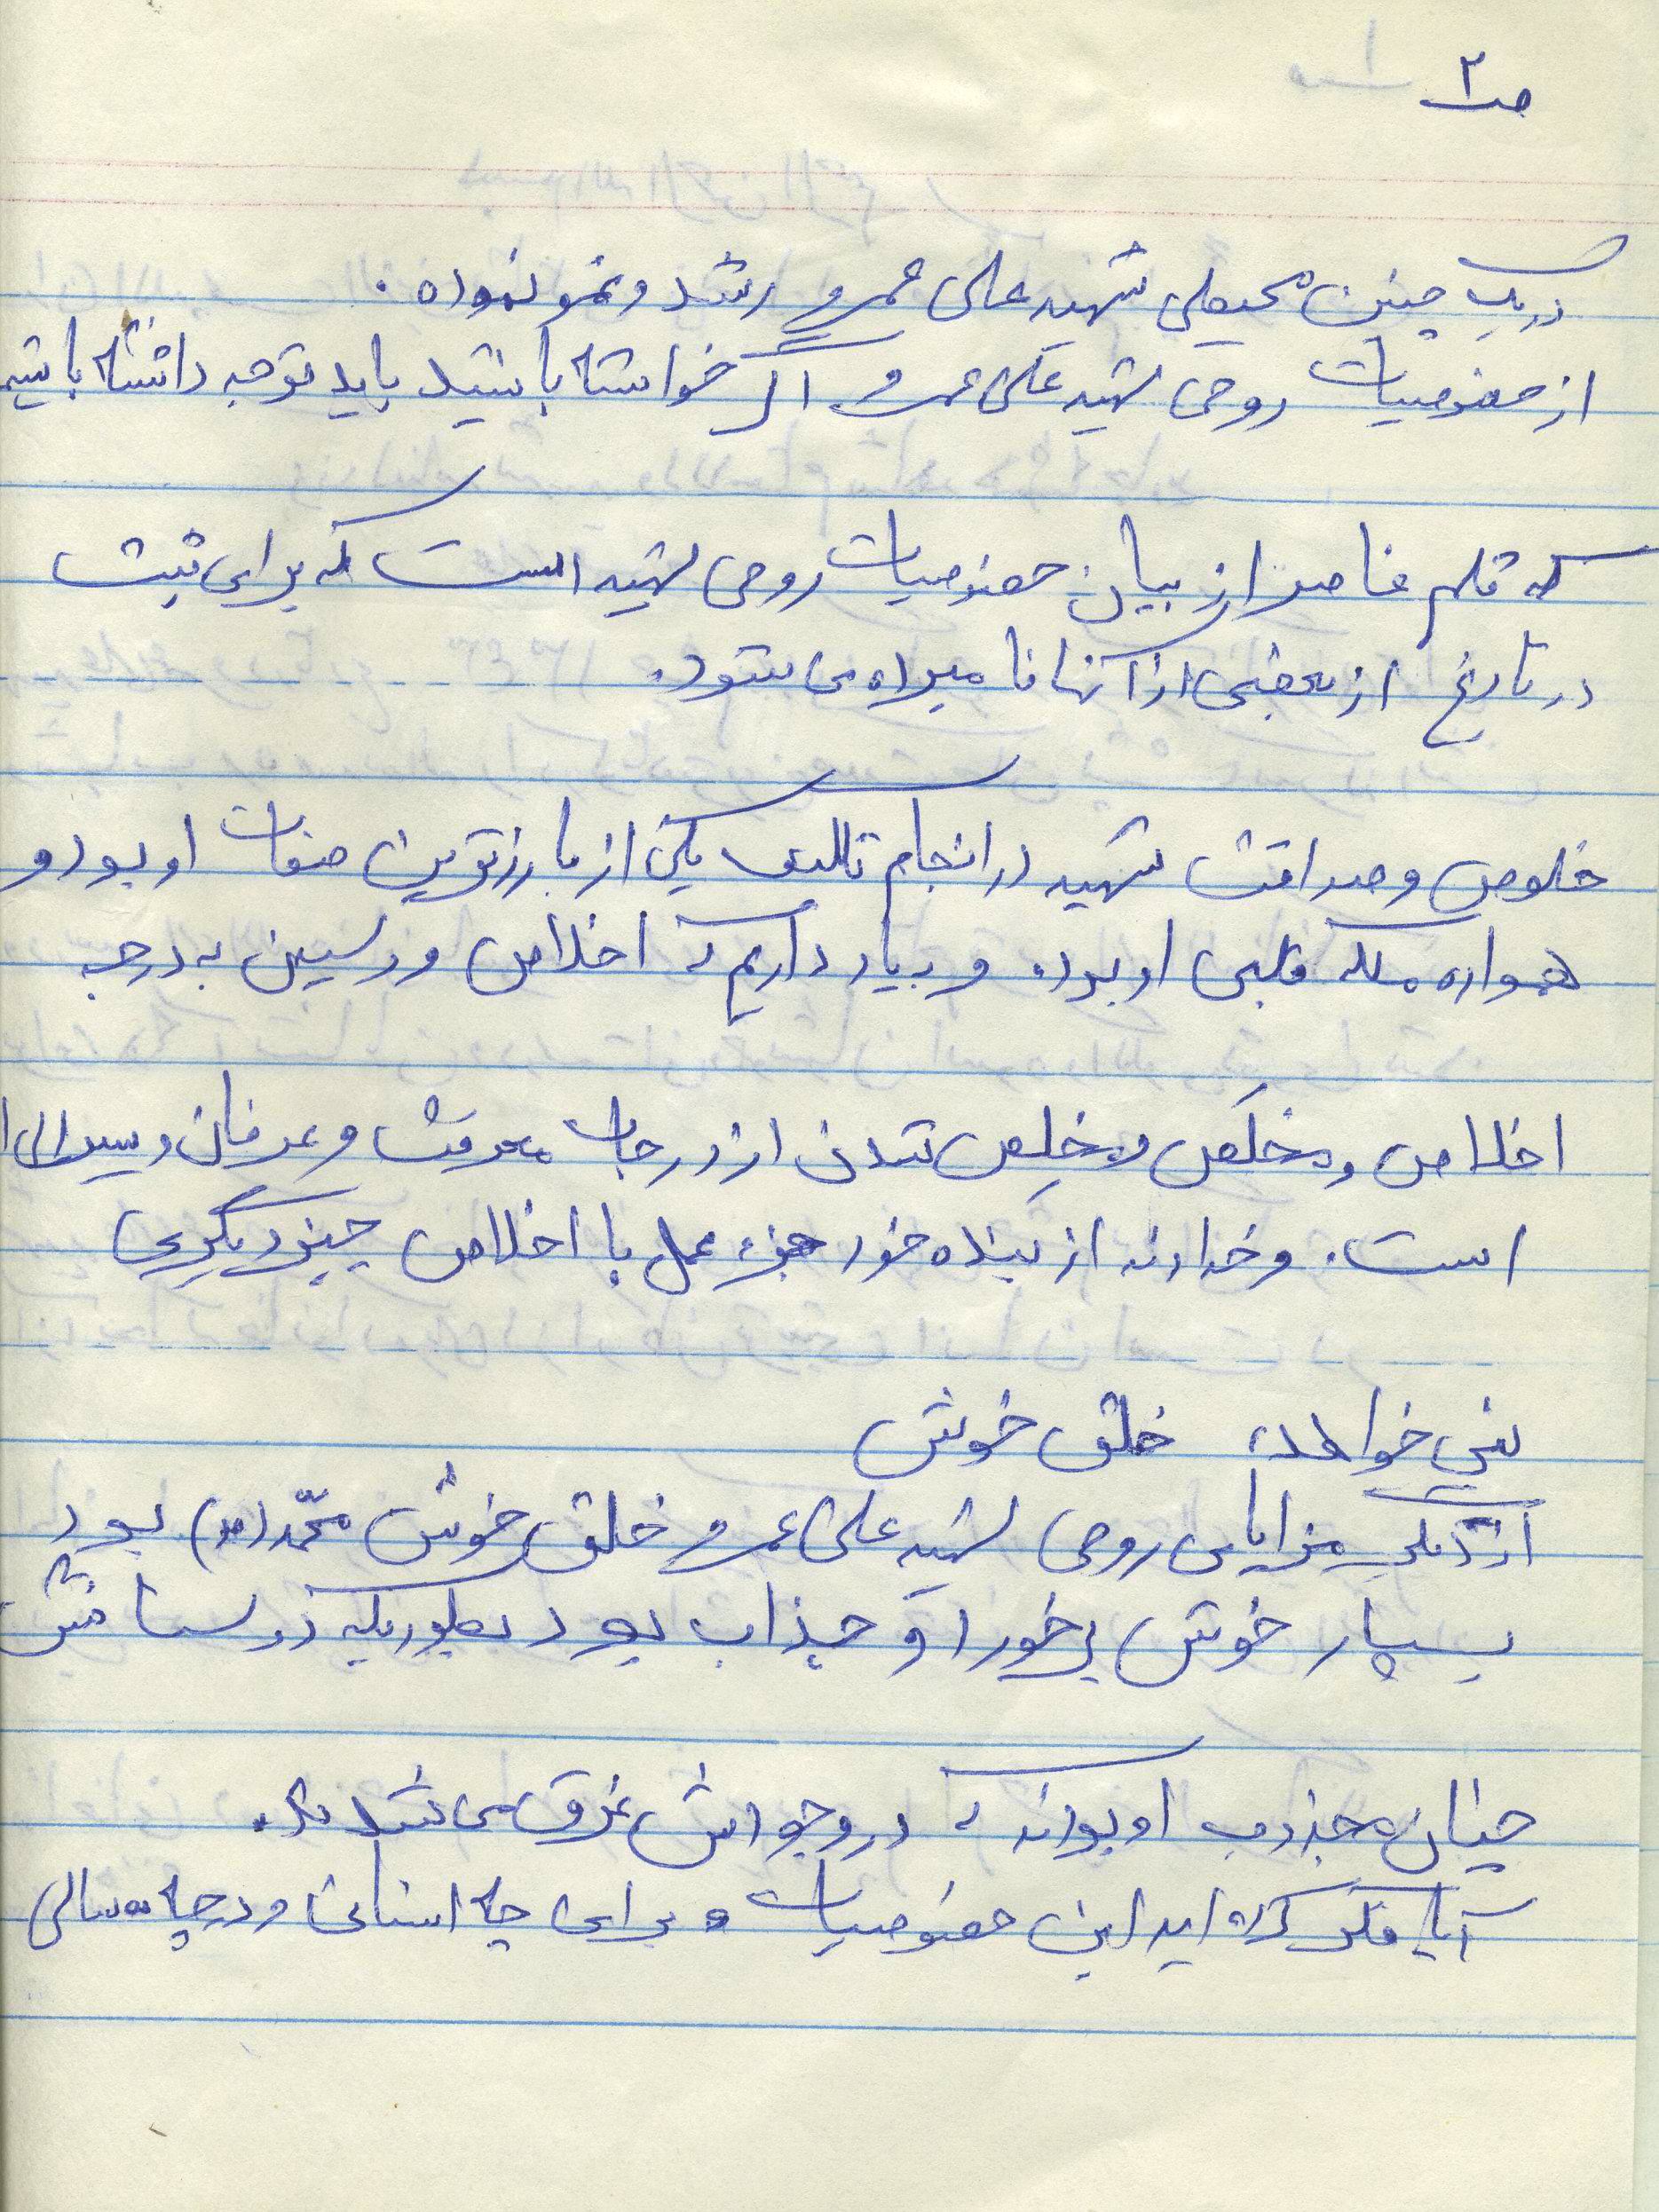 ص ۲
در یک چنین محیطی شهید علی عمرو رشد و نمو نموده.
از خصوصیات روحی شهید علی عمرو اگر خواسته باشید باید توجه داشته باشیم
که قلم قاصر از بیان خصوصیات روحی شهید است که برای ثبت
در تاریخ از بعضی از آنها نام برده می شود.
خلوص و صداقت شهید در انجام تکلیف یکی از بارزترین صفات او بود و
همواره ملکه قلبی او بود. و بیاد داریم که اخلاص و رسیدن به درجه
اخلاص و مخلَص و مخلِص شدن از درجات معرفت و عرفان و سیر الی ا
است. و خداوند از بنده خود جزء عمل با اخلاص چیز دیگری
نمی خواهد، خلق خوش
از دیگر مزایای روحی شهید علی عمرو خلق خوش محمّد (ص) بود
بسیار خوش برخورد و جذاب بود بطوریکه دوستانش
چنان مجذوب او بودند که در وجودش غرق می شدند.
آیا فکر کرده اید این خصوصیات برای چه انسانی و در چه سالی